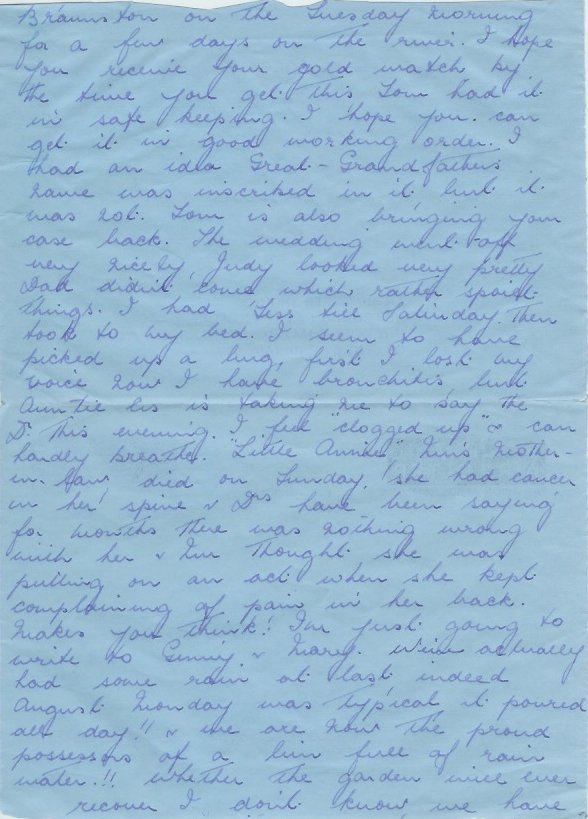 Bramston on the Tuesday morning
for a few days on the river. I hope
you receive your gold watch by
the time you get this Tom had it
in safe keeping. I hope you can
get it in good working order. I
had an idea Great-Grandfathers
name was inscribed in it but it
was not. Tom is also bringing your
case back. The wedding went off
very nicely, Judy looked very pretty
Dad didn't come which rather spoilt
things. I had Tess till Saturday then
took to my bed. I seem to have
picked up a bug, first I lost my
voice now I have bronchitis, but
Auntie is taking me to the
Dr this evening. I feel "clogged up" & can
hardly breathe. "Little Annie" Mother-
in-law, died on Sunday, she had cancer
in her spine & Drs have been saying
for months there was nothing wrong
with her & thought she was
putting on an act when she kept
complaining of pain in her back.
Makes you think! I'm just going to
write to Ginny & Mary. We've actually
had some rain at last indeed
August Monday was typical it poured
all day!! & we are now the proud
possessors of a bin full of rain
water.!! Whether the garden will ever
recover I don't know, we have